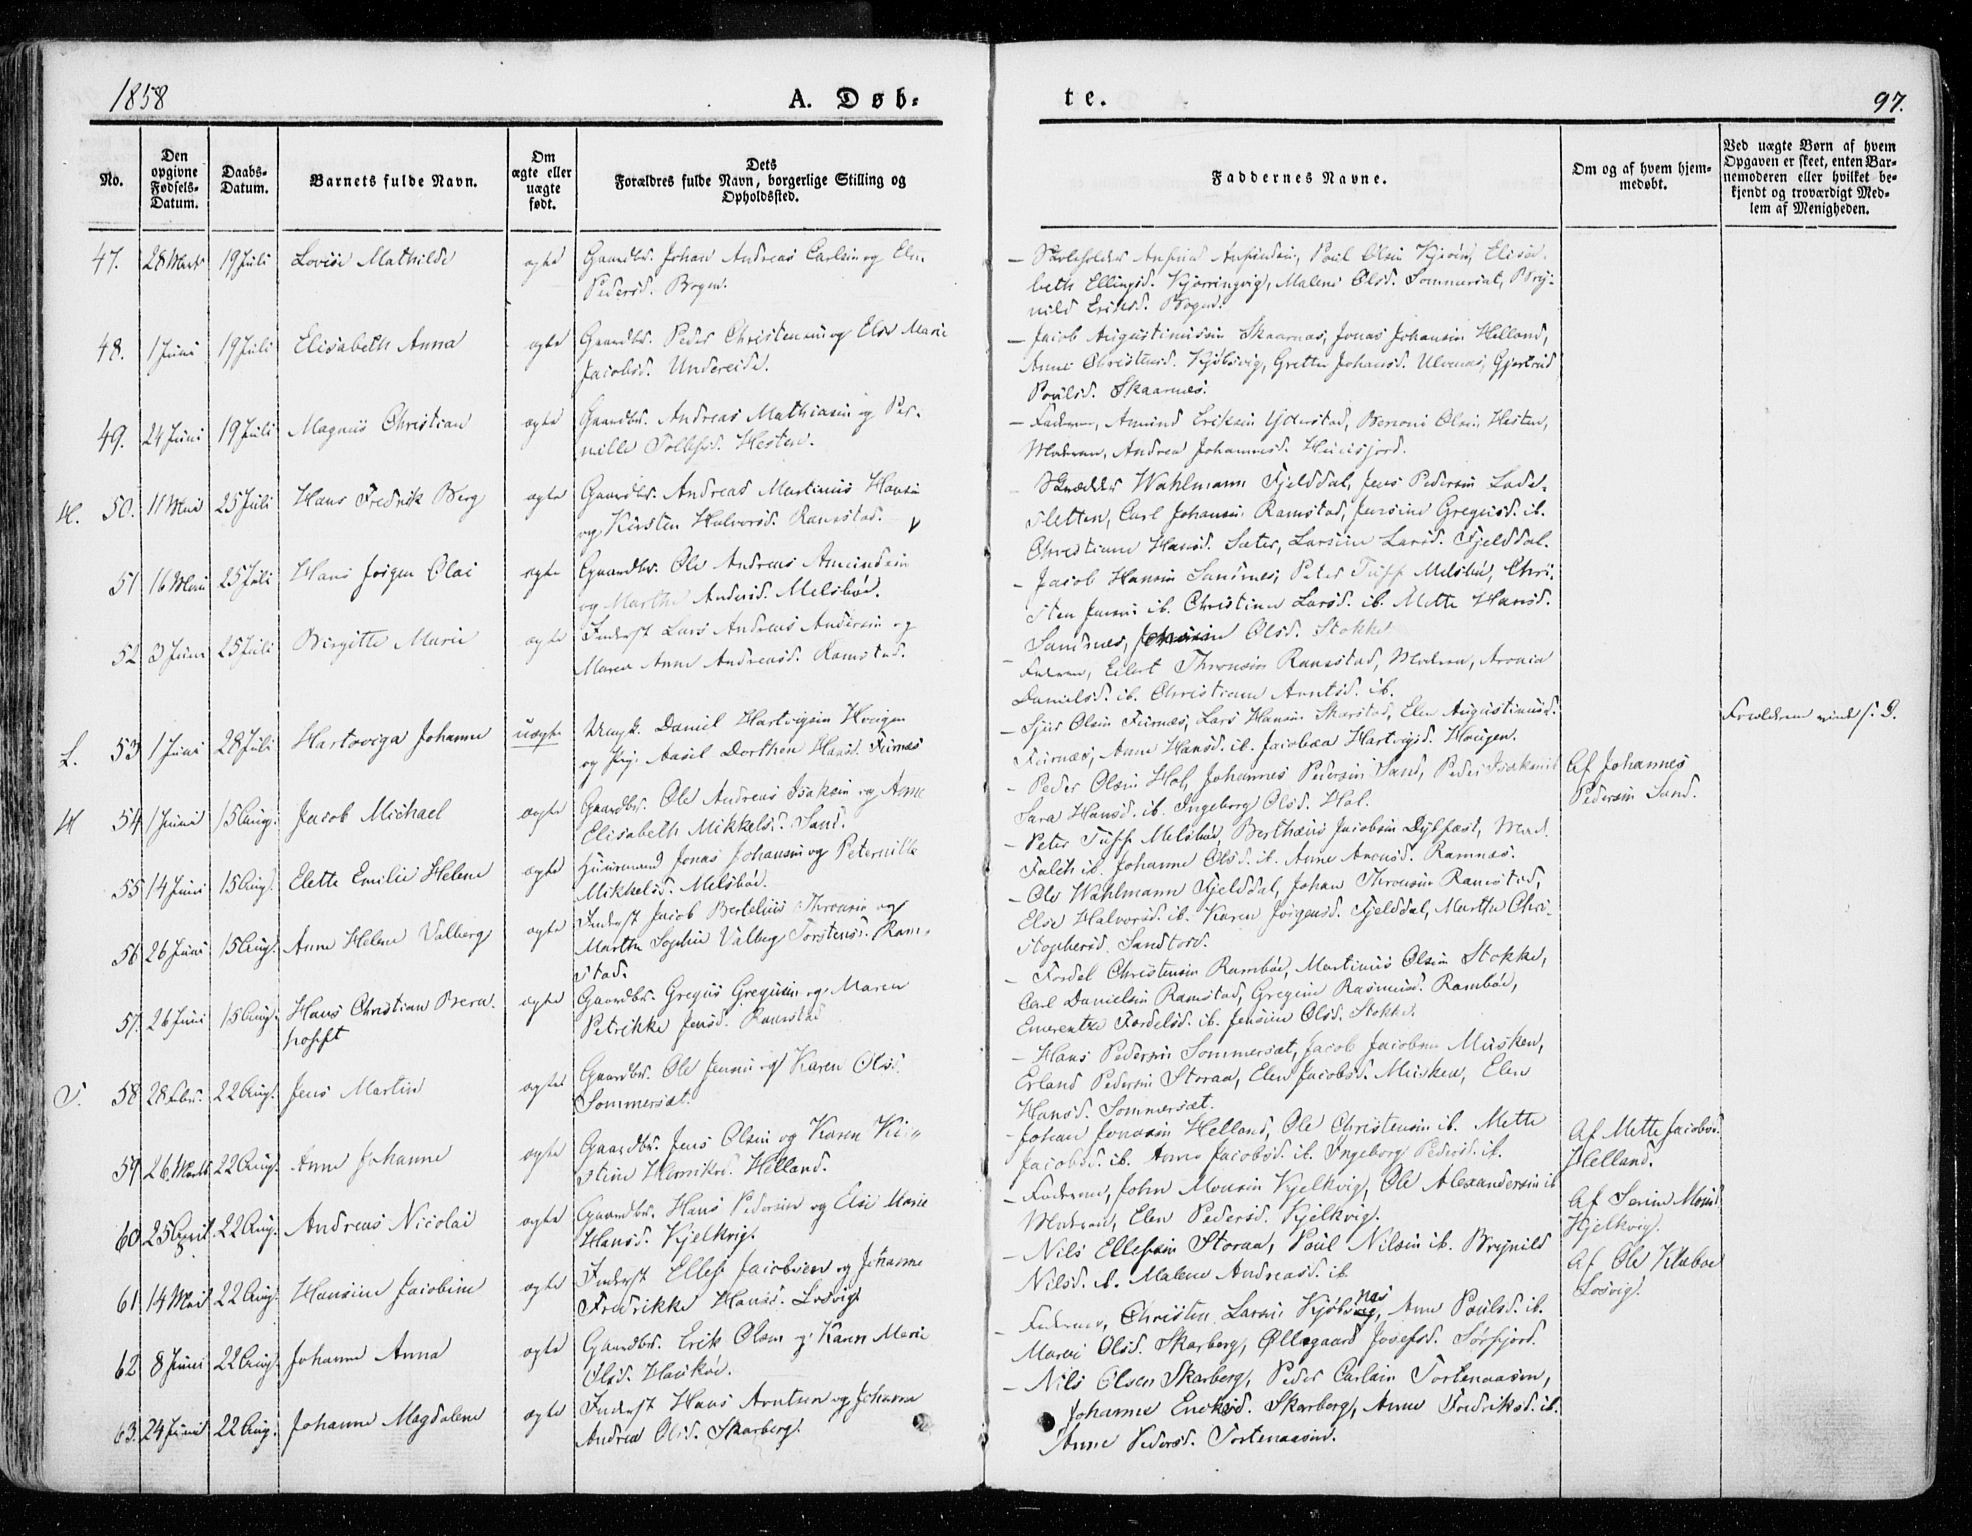 1858
A. Døb-
te.
97.
No.
Den opgivne Fødsels-Datum.
Daabs-Datum.
Barnets fulde Navn.
Om ægte eller uægte født.
Dets Forældres fulde Navn, borgerlige Stilling og Opholdssted.
Faddernes Navne.
Om og af hvem hjem-medøbt.
Ved uægte Børn af hvem Opgaven er skeet, enten Bar-nemoderen eller hvilket be-kjendt og troværdigt Med-lem af Menigheden.
47. 28 Marts 19 Juli Lovise Mathilde ægte Gaardbr. Johan Andreas Carlsen og Elen
Pedersd. Bogen.
Poul Olsen Elisa-
beth Ellingsd. Kjørringvig, Malene Olsd. Sommerset, Bry-
nild Eriksd. Bogen.
48. 1 Juni 19 Juli Elisabeth Anna ægte Gaardbr. Peder Christensen og Else Marie
Jacobsd. Undereide.
– Jacob Augustinussen Skaarnæs, Jonas Johansen Helland,
Anne Christensd. Kjøbsvig, Grethe Johansd. Ulvenæs, Gjertrud
Poulsd. Skaarnæs.
49. 24 Juni 19 Juli Magnus Christian ægte Gaardbr. Andreas Mathiasen og Per-
nille Tollefsd. Hesten.
– Faderen, Amund Eriksen Ylderstad, Benoni Olsen Hesten,
Moderen, Andrea Johannesd.
H. 50. 11 Mai 25 Juli Hans Fredrik Berg ægte Gaardbr. Andreas Martinus Hansen
og Kirsten Halvorsd. Ramstad.
Wahlmann Fjelddal, Jens Pedersen Lade-
sletten, Carl Johansen Ramstad, Jensine Gregusd. ib.
Christiane Hansd. Sæter, Larsine Larsd. Fjelddal.
51 16 25 Juli Hans Jørgen Olai ægte Gaardbr. Ole Andreas Amundsen
og Marthe Andersd. Melsbøe.
– Jacob Hansen Sandnes, Peter Tuff Melsbøe, Chri-
sten Jensen ib. Christine Larsd. ib. Mette Hansd.
Sandnes, Olsd. Stokke
52 3 Juni 25 Juli Birgitte Marie ægte Inderst Lars Andreas Andersen og
Maren Anne Andreasd. Ramstad.
– Faderen, Eilert Thronsen Ramstad, Moderen, Aronia
Danielsd. ib. Christiane Arntsd. ib.
L. 53 1 Juni 28 Juli Hartviga Johanne uægte Ungk. Daniel Hartvigsen Hougen
og Pig. Aasil Dorthea Hansd.
– Sjur Olsen Lars Hansen Skarstad, Elen Augustinusd.
Anne Hansd. ib. Jacobæa Hartvigsd. Hougen.
Forældrene
H 54 1 Juni 15 Aug. Jacob Michael ægte Gaardbr. Ole Andreas Isaksen og Anne
Elisabeth Mikkelsd. Sand.
– Peder Olsen Hol, Johannes Pedersen Sand, Peder Isaksen ib
Sara Hansd. ib. Ingeborg Olsd. Hol.
Af Johannes
Pedersen Sand.
55 14 Juni 15 Aug. Elette Emilie Helene ægte Huusmand Jonas Johansen og Peternille
Mikkelsd. Melsbøe.
– Peter Tuff Melsbøe, Berthæus Jacobsen Dybfæst, Mad.
Falch ib. Johanne Olsd. ib. Anne Ramnæs.
56 26 Juni 15 Aug. Anne Helene Valberg ægte Inderst Jacob Bertelius Thronsen og
Martha Sophie Valberg Torstensd. Ram-
stad.
– Ole Wahlmann Fjelddal, Johan Thronsen Ramstad,
Else Halvorsd. ib. Karen Jørgensd. Fjelddal, Martha Chri-
stophersd. Sandtorv.
57. 26 Juni 15 Aug. Hans Christian Bern-
hofft ægte Gaardbr. Gregus Gregusen og Maren
Petrikke Jensd. Ramstad
– Fordel Christensen Rambøe, Martinus Olsen Stokke,
Carl Danielsen Ramstad, Gregine Rasmusd. Rambøe,
Emerentze Fordelsd. ib. Jensine Olsd. Stokke.
S. 58 28 Febr. 22 Aug. Jens Martin ægte Gaardbr. Ole Jensen og Karen Olsd.
Sommerset.
– Hans Pedersen Sommersæt, Jacob Jacobsen Musken,
Erland Pedersen Storaa, Elen Jacobsd. Musken, Elen
Hansd. Sommersæt.
59 26. Marts 22 Aug. Anne Johanne ægte Gaardbr. Jens Olsen og Karen Kir-
stine Henriksd. Helland.
– Johan Jonasen Helland, Ole Christensen ib. Mette
Jacobsd. ib. Anne Jacobsd. ib. Ingeborg Pedersd. ib.
Af Mette Jacobsd.
Helland.
60 25 April 22 Aug. Andreas Nicolai ægte Gaardbr. Hans Pedersen og Else Marie
Hansd. Kjelkvig.
– Faderen, John Monsen Kjelkvig, Ole Alexandersen ib
Moderen, Elen Pedersd. Kjelkvig.
Af
Kjelkvig.
61 14 Mai 22 Aug. Hansine Jacobine ægte Inderst Ellef Jacobsen og Johanne
Fredrikke Hansd. Losvig.
– Nils Ellefsen Storaa, Poul Nilsen ib. Brynild
Nilsd. ib. Malene Andreasd. ib.
Af Ole Klæboe
Losvig.
62 8 Juni 22 Aug. Johanne Anna ægte Gaardbr. Erik Olsen og Karen Marie
Olsd. Haukøe.
– Faderen, Christen Larsen Kjøbsnæs, Anne Poulsd. ib.
Maren Olsd. Skarberg, Øllegaard Josefsd. Sørfjord.
63. 24 Juni 22 Aug. Johanne Magdalene ægte Inderst Hans Arntsen og Johanna
Andrea Olsd. Skarberg.
– Nils Olsen Skarberg, Peder Carlsen Tortenaasen,
Johanne Skarberg, Anne Fredriksd. ib.
Anne Pedersd. Tortenaasen.